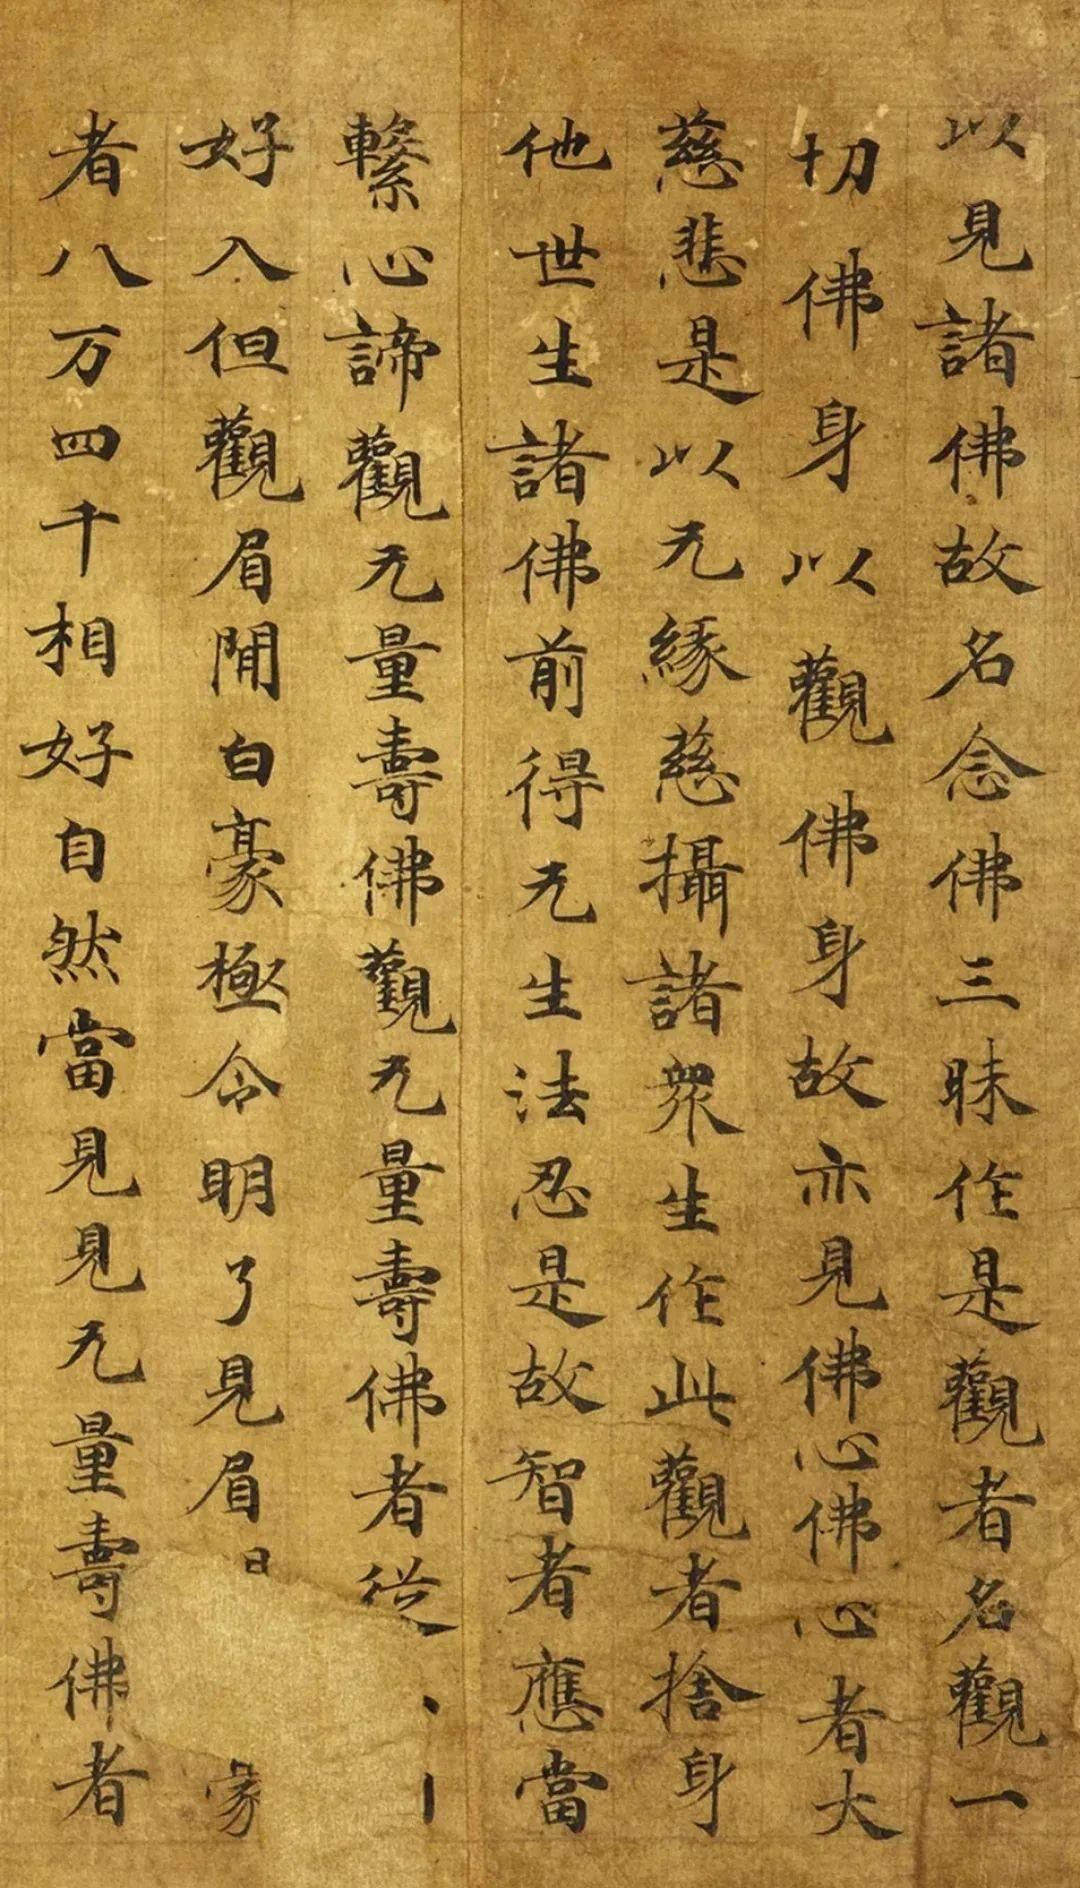 以見諸佛故名念佛三昧作是觀者名觀一
切佛身以觀佛身故亦見佛心佛心者大
慈悲是以无緣慈慈攝諸衆生作此觀者捨身
他世生諸佛前得无生法忍是故智者應當
繫心諦觀无量壽佛觀无量壽佛者從
好入但觀眉閒白豪極令明了見眉
者八万四千相好自然當見見无量壽佛者